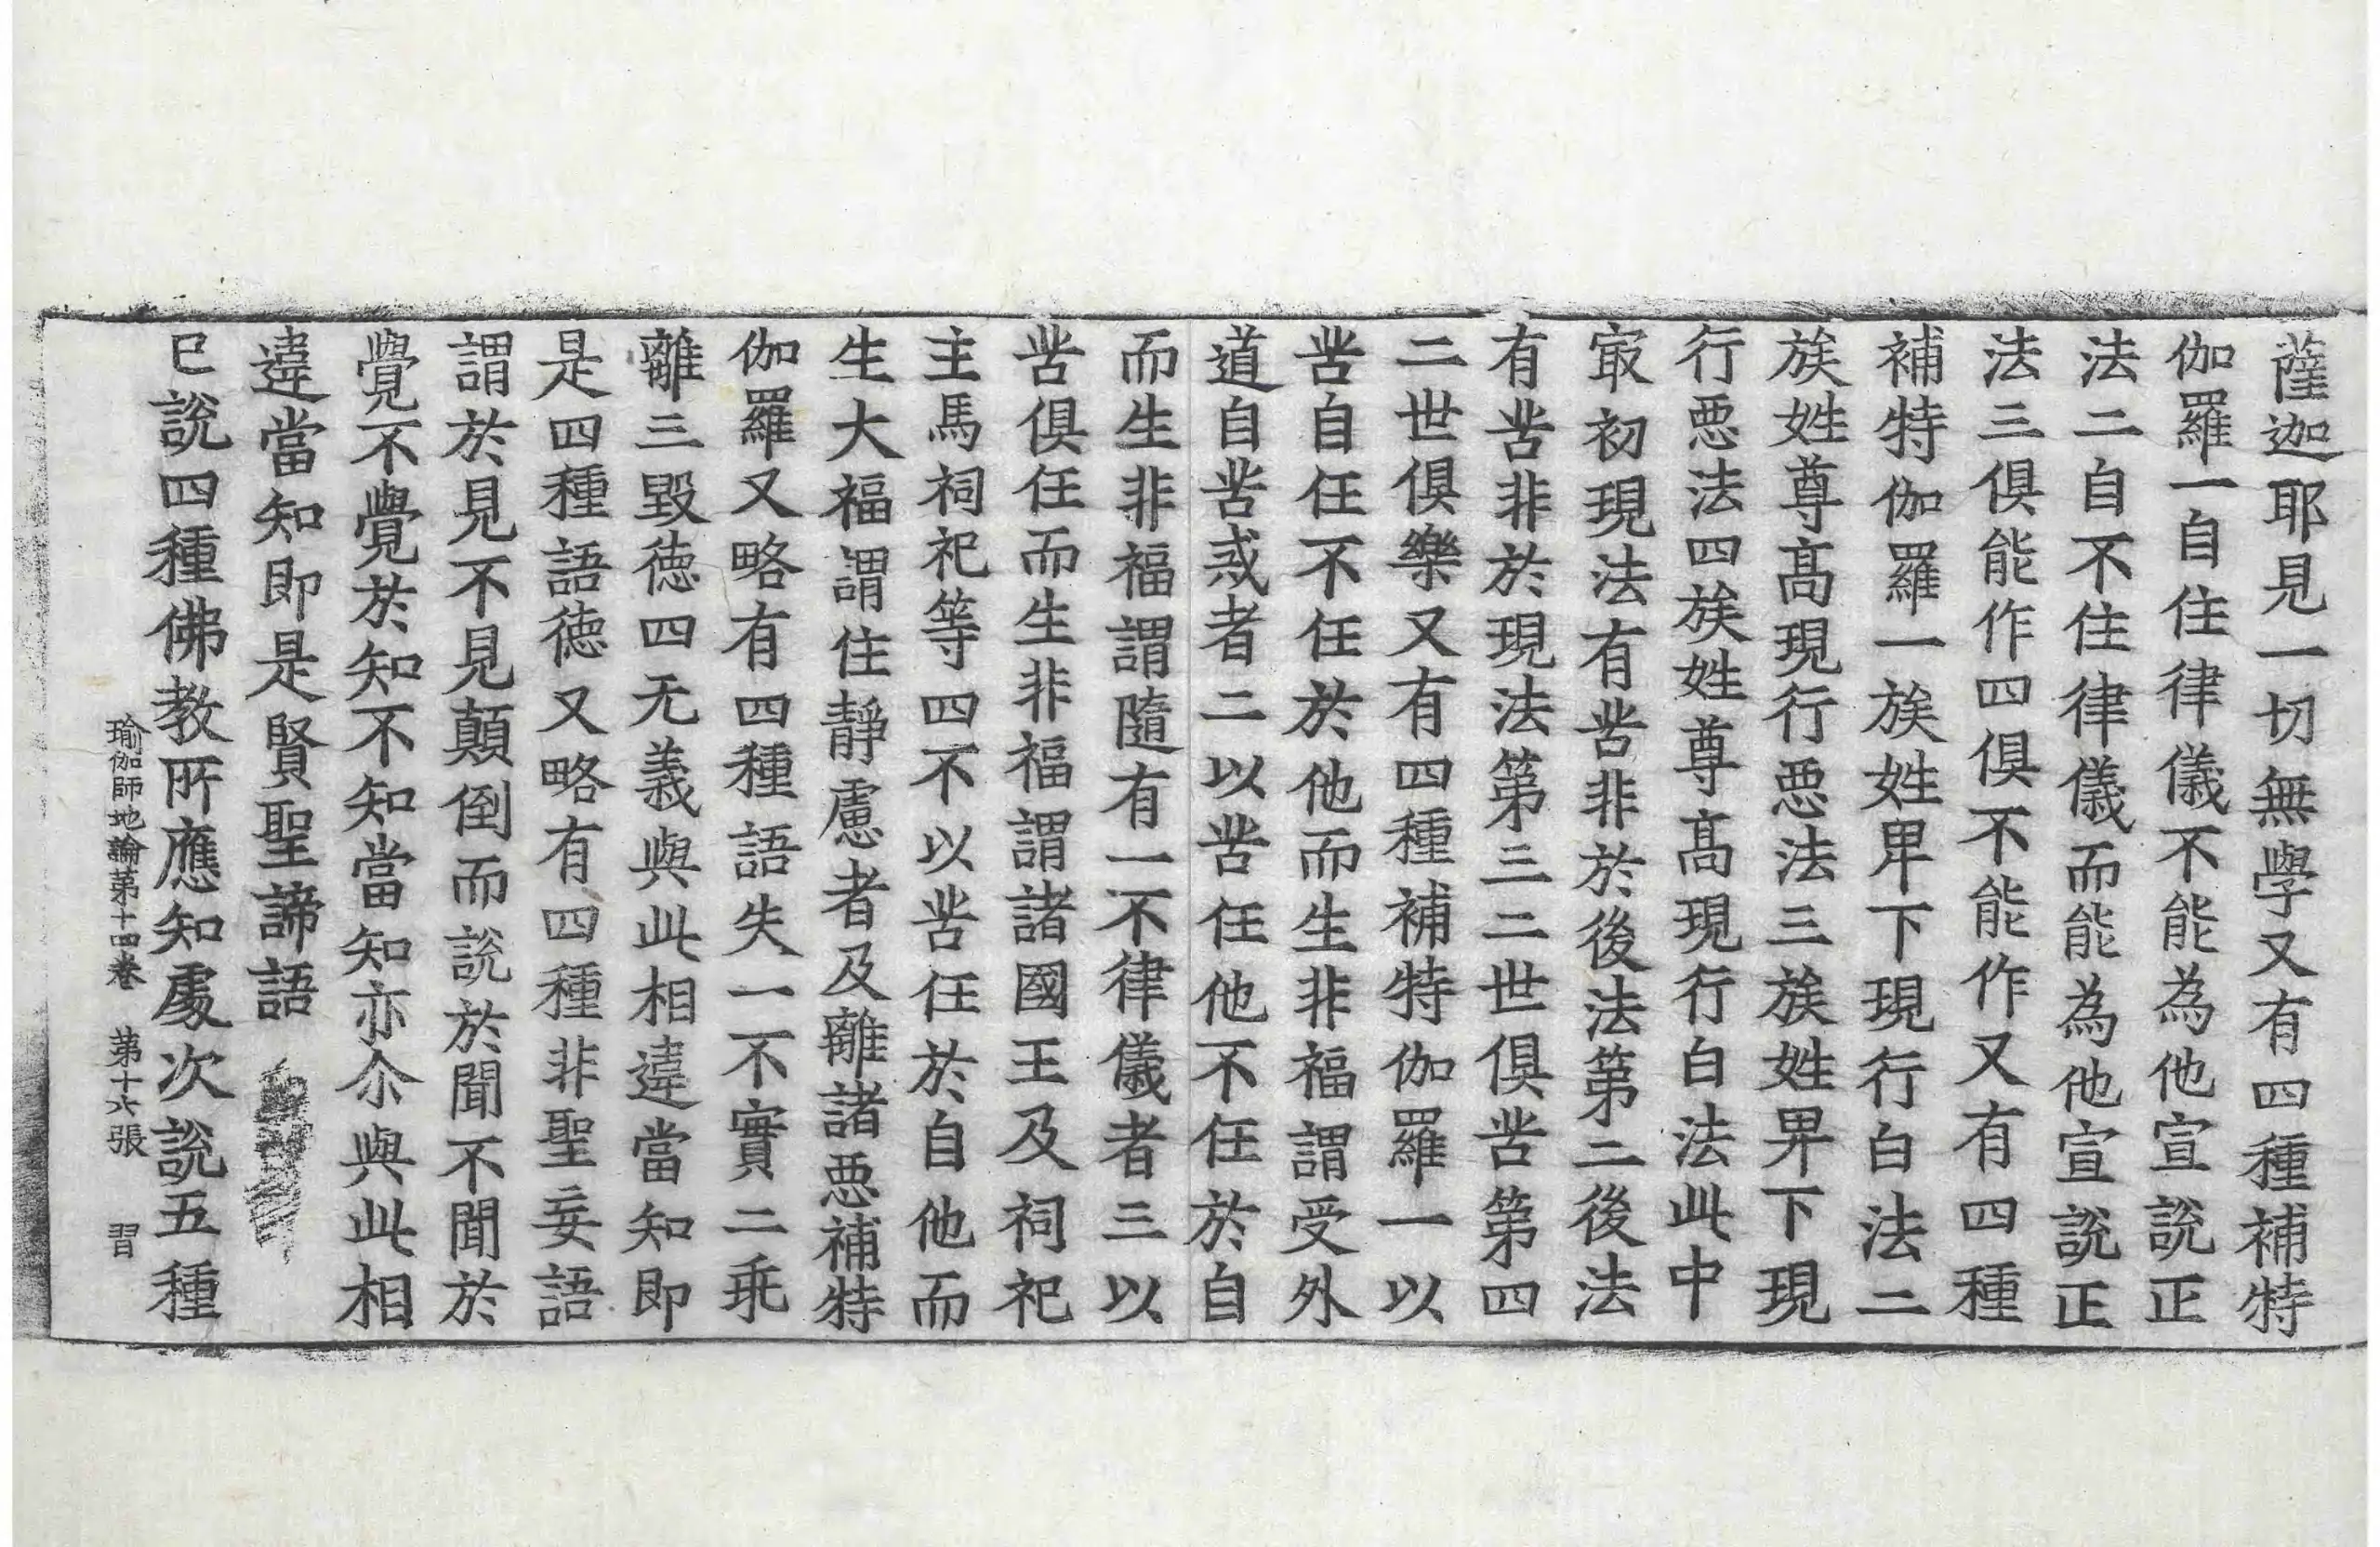 薩迦耶見一切無學又有四種補特
伽羅一自住律儀不能為他宣說正
法二自不住律儀而能為他宣說正
法三俱能作四俱不能作又有四種
補特伽羅一族姓卑下現行白法二
族姓尊髙現行惡法三族姓卑下現
行惡法四族姓尊髙現行白法此中
㝡初現法有苦非於後法第二後法
有苦非於現法第三二世俱苦第四
二世俱樂又有四種補特伽羅一以
苦自任不任於他而生非福謂受外
道自苦戒者二以苦任他不任於自
而生非福謂隨有一不律儀者三以
苦俱任而生非福謂諸國王及祠祀
主馬祠祀等四不以苦任於自他而
生大福謂住靜慮者及離諸惡補特
伽羅又略有四種語失一不實二乖
離三毀徳四无義與此相違當知即
是四種語徳又略有四種非聖妄語
謂於見不見顛倒而說於聞不聞於
覺不覺於知不知當知亦尒與此相
違當知即是賢聖諦語
已說四種佛教所應知處次說五種
瑜伽師地論第十四卷　第十六張　習